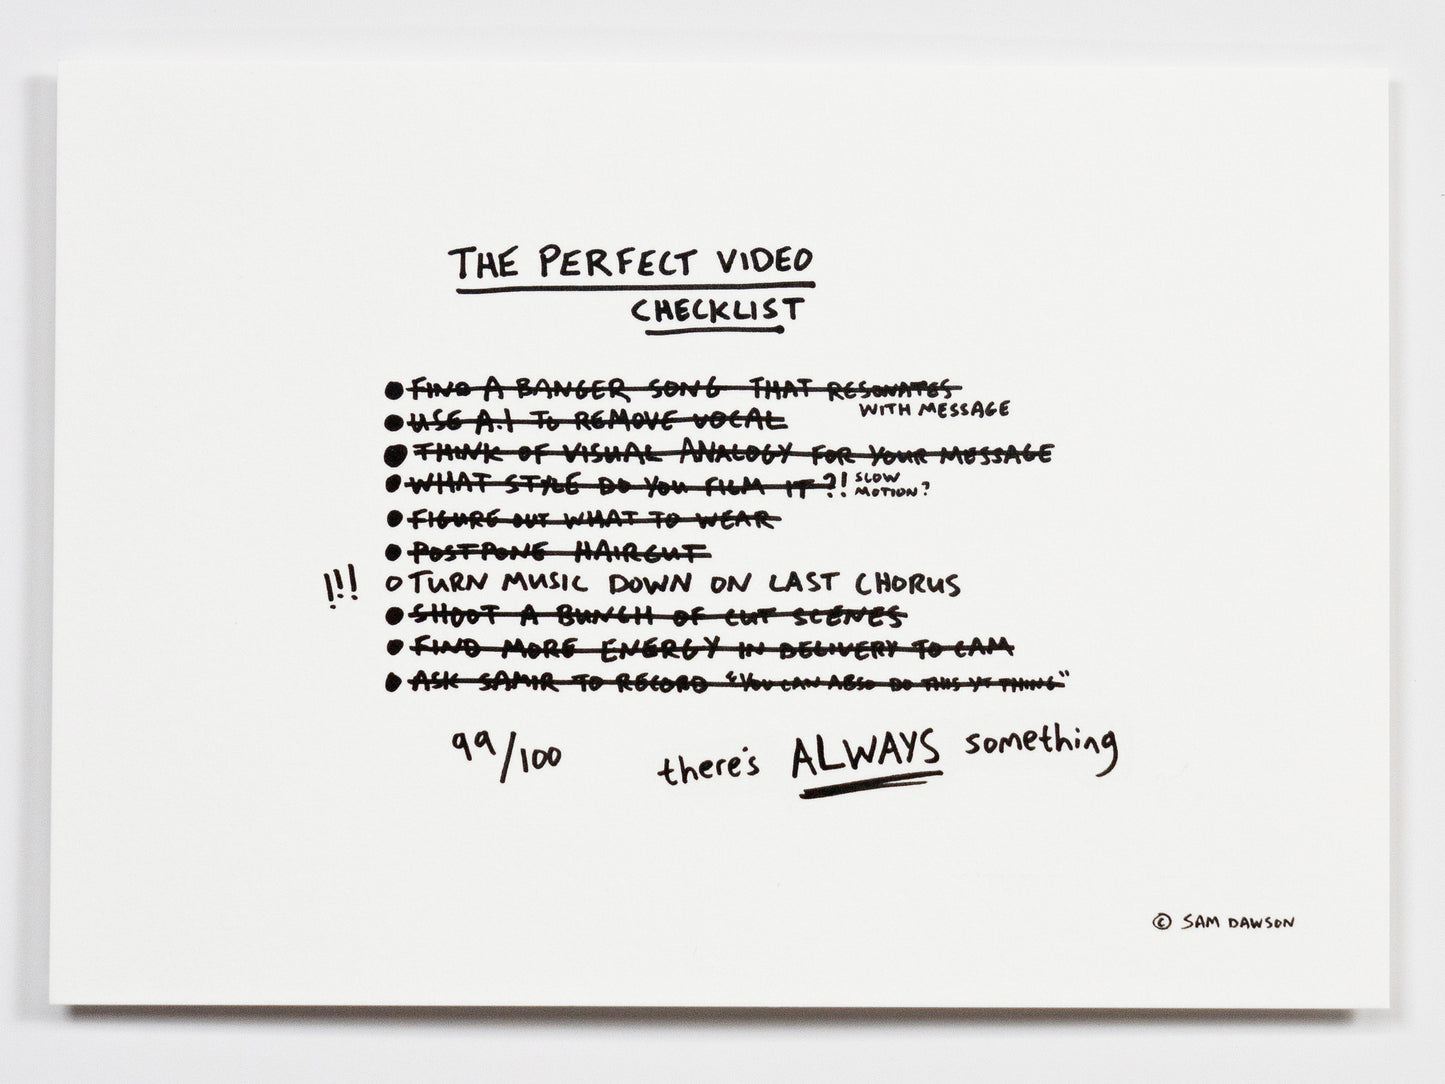 THE PERFECT VIDEO
CHECKLIST
FIND A BANGER SONG THAT RESONATES
WITH MESSAGE
USE A.I TO REMOVE VOCAL
THINK OF VISUAL ANALOGY FOR YOUR MESSAGE
WHAT STYLE DO YOU FILM IT?! SLOW
MOTION?
FIGURE OUT WHAT TO WEAR
POSTPONE HAIRCUT
!!! TURN MUSIC DOWN ON LAST CHORUS
SHOOT A BUNCH OF CUT SCENES
FIND MORE ENERGY IN DELIVERY TO CAM
ASK SAMIR TO RECORD "YOU CAN ALSO DO THIS YT THING"
99/100 there's ALWAYS something
© SAM DAWSON